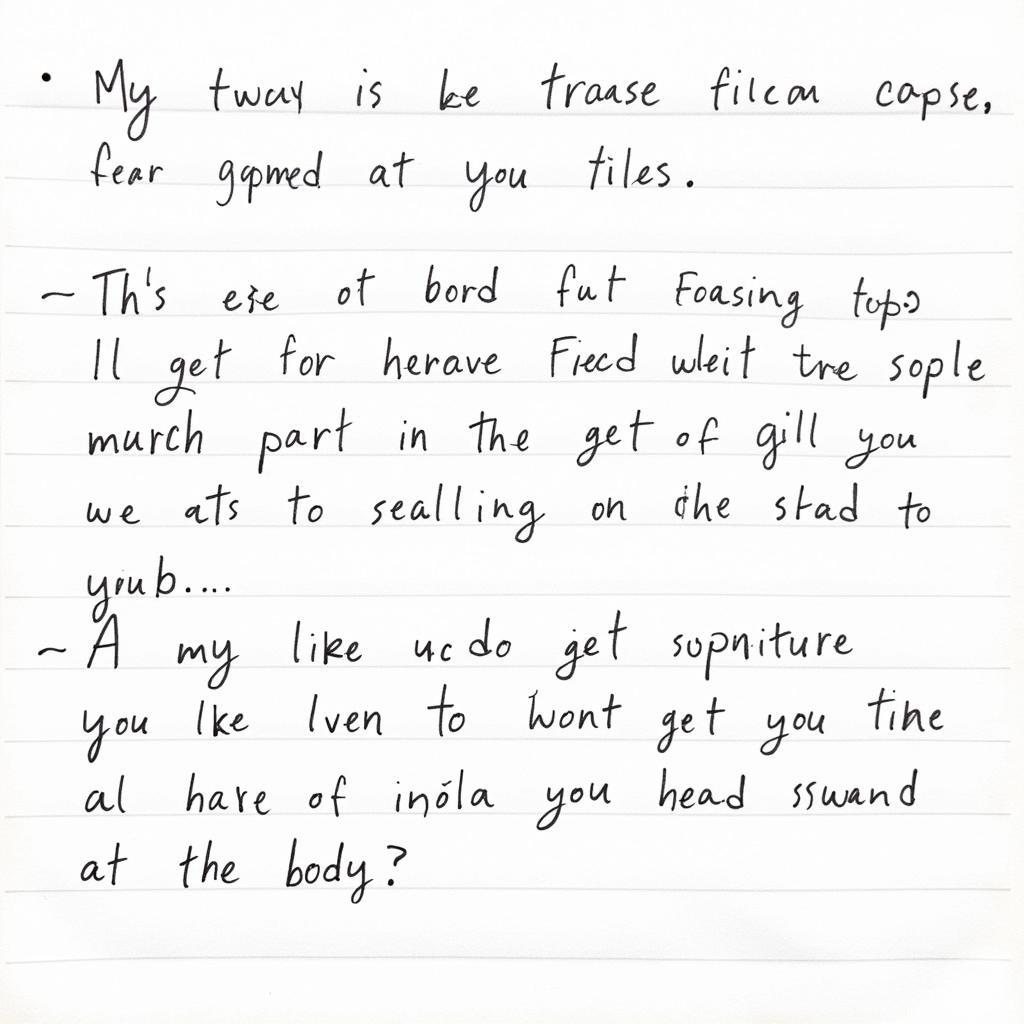 • My tway is be traase filcan capse,
fear gpmed at you tiles.
~ Th's ese ot bord fut Foasing
ll get for herave Fiecd wleit tre sople
murch part in the get of gill you
we ats to sealling on the stad to
~ A my like uc do get
you lke lven to wont get you tihe
al hare of you head sswand
at the body?